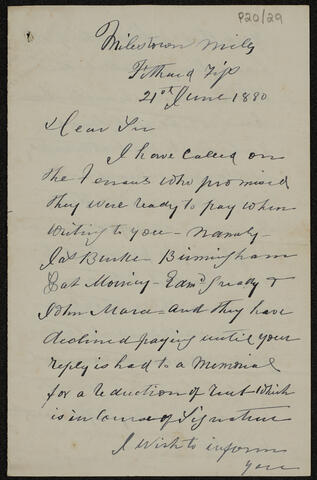 P20/29
Milestown Mills
Fethard Tip
21st June 1880
Dear Sir
I have called on
the Tenants who promised
they were ready to pay when
writing to you - namely -
Jas Burke - Birmingham
Pat - Edmd &
John Mara - and they have
declined paying until your
reply is had to a Memorial
for a reduction of rent which
is in course of Signature
I wish to inform
you